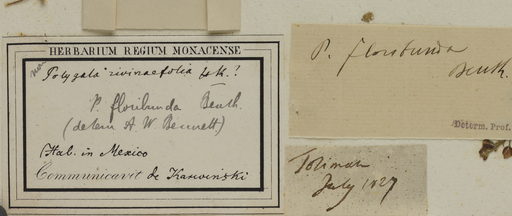 HERBARIUM REGIUM MONACENSE
non
Polygala rivinaefolia HK.?
P. floribunda Benth.
(determ A. W. Bennett)
(Hab. in Mexico
Communicavit de Karwiński
P. floribunda
Benth.
Determ. Prof.
Toliman
July 1827